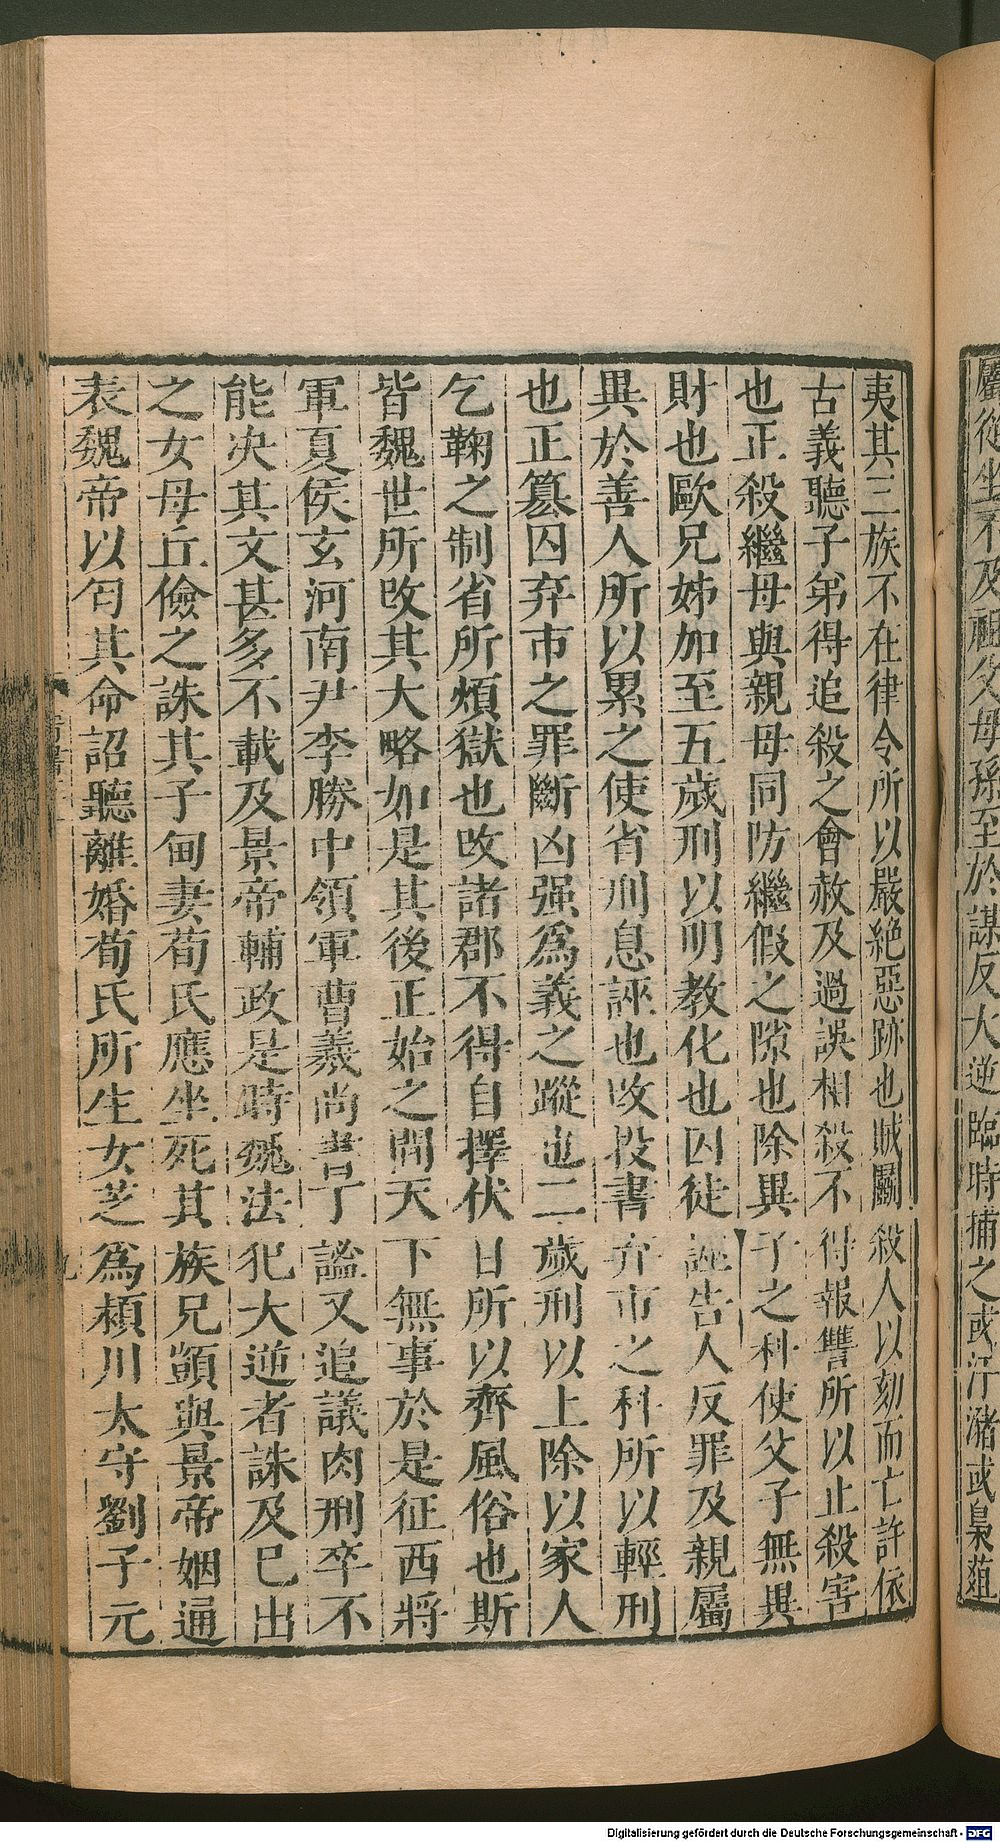 屬從坐不及祖父母孫至於謀反大逆臨時捕之或汙瀦或梟菹
夷其三族不在律令所以嚴絕惡跡也賊鬬殺人以劾而亡許依
古義聽子弟得追殺之會赦及過誤相殺不得報讐所以止殺害
也正殺繼母與親母同防繼假之隙也除異子之科使父子無異
財也歐兄姊加至五歲刑以明教化也囚徒誣告人反罪及親屬
異於善人所以累之使省刑息誣也改投書弃市之科所以輕刑
也正篡囚弃市之罪斷凶强爲義之蹤也二歲刑以上除以家人
乞鞠之制省所煩獄也改諸郡不得自擇伏日所以齊風俗也斯
皆魏世所改其大略如是其後正始之間天下無事於是征西將
軍夏侯玄河南尹李勝中領軍曹羲尚書丁謐又追議肉刑卒不
能决其文甚多不載及景帝輔政是時魏法犯大逆者誅及已出
之女毋丘儉之誅其子甸妻荀氏應坐死其族兄顗與景帝姻通
表魏帝以匄其命詔聽離婚荀氏所生女芝爲潁川太守劉子元
Digitalisierung gefördert durch die Deutsche Forschungsgemeinschaft - DFG